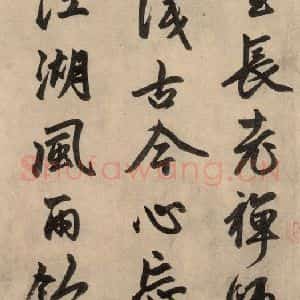 長老禪師
古今心忘
江湖風雨
shufawang.cn